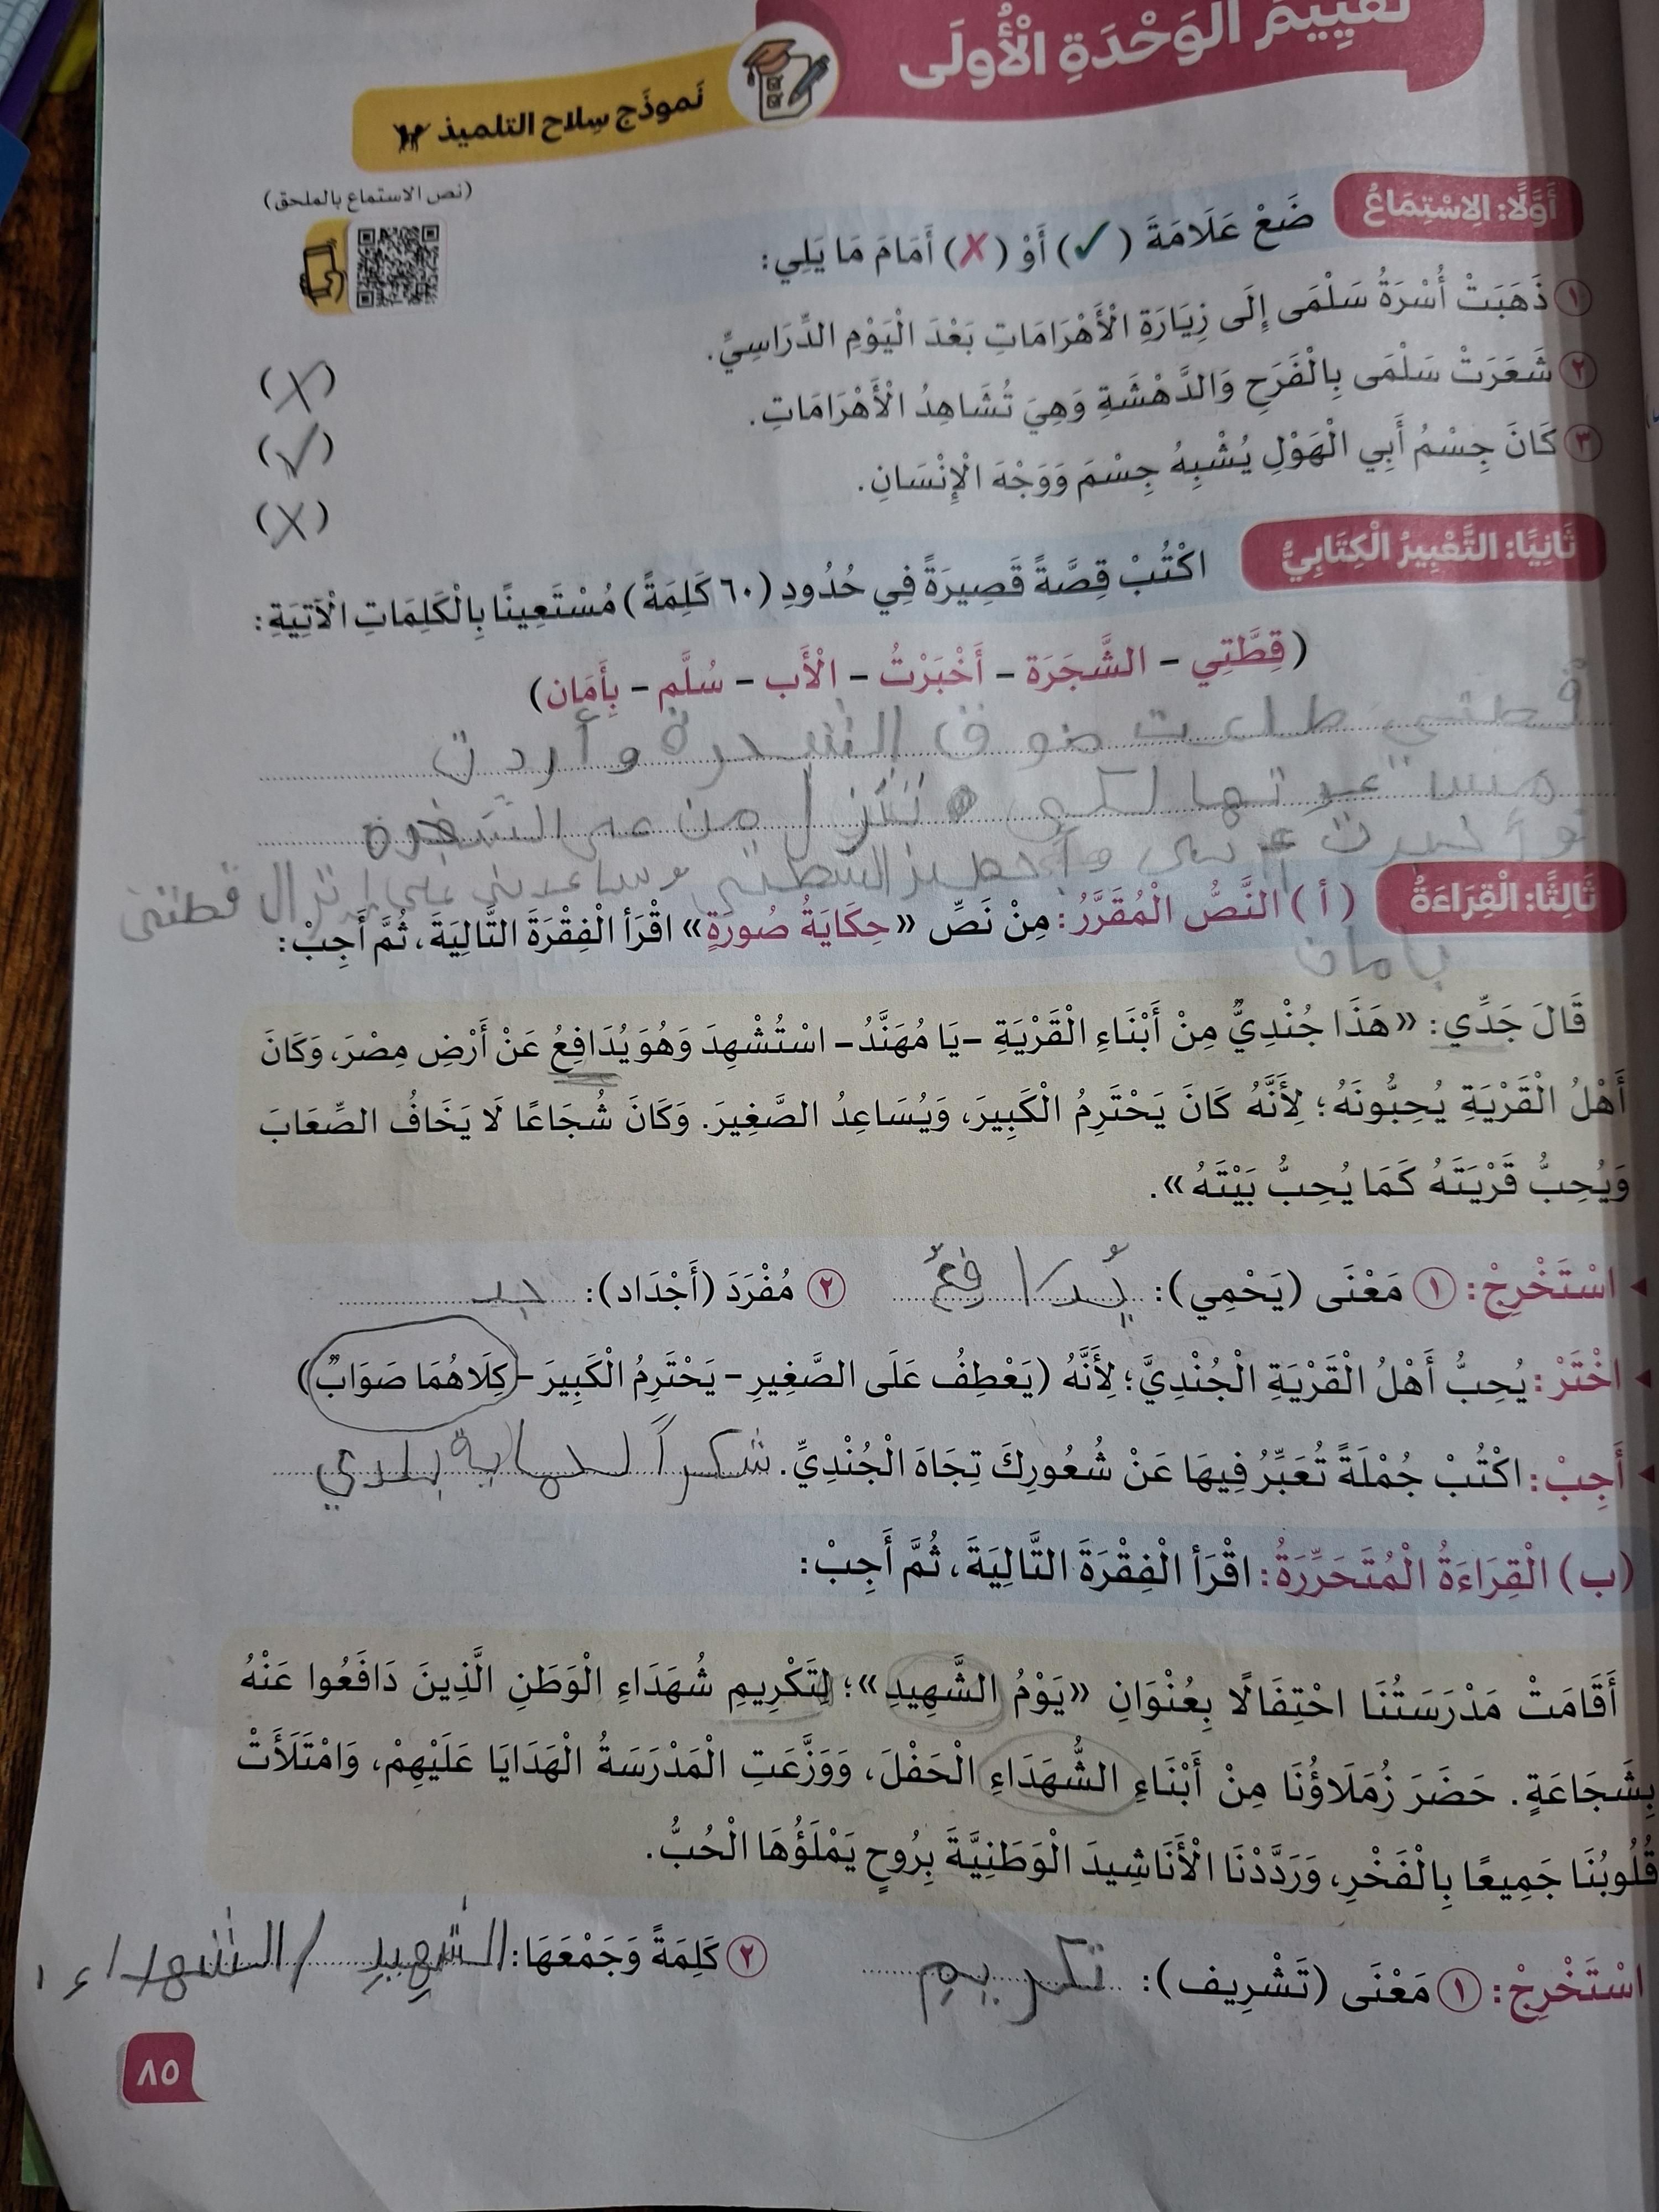 تَقْيِيمُ الْوَحْدَةِ الْأُولَى
نَموذَج سِلاح التلميذ
(نص الاستماع بالملحق)
أَوَّلًا: الِاسْتِمَاعُ
ضَعْ عَلَامَةَ (✓) أَوْ (✗) أَمَامَ مَا يَلِي:
١ ذَهَبَتْ أُسْرَةُ سَلْمَى إِلَى زِيَارَةِ الْأَهْرَامَاتِ بَعْدَ الْيَوْمِ الدِّرَاسِيِّ. (X)
٢ شَعَرَتْ سَلْمَى بِالْفَرَحِ وَالدَّهْشَةِ وَهِيَ تُشَاهِدُ الْأَهْرَامَاتِ. (✓)
٣ كَانَ جِسْمُ أَبِي الْهَوْلِ يُشْبِهُ جِسْمَ وَوَجْهَ الْإِنْسَانِ. (X)
ثَانِيًا: التَّعْبِيرُ الْكِتَابِيُّ
اكْتُبْ قِصَّةً قَصِيرَةً فِي حُدُودِ (٦٠ كَلِمَةً) مُسْتَعِينًا بِالْكَلِمَاتِ الْآتِيَةِ:
(قِطَّتِي - الشَّجَرَة - أَخْبَرْتُ - الْأَب - سُلَّم - بِأَمَان)
قطتي طلعت فوق الشجرة وأردت
لكي تنزل من على الشجرة
وساعدني على إنزال قطتي
بأمان
ثَالِثًا: الْقِرَاءَةُ
(أ) النَّصُّ الْمُقَرَّرُ: مِنْ نَصِّ «حِكَايَةُ صُورَةٍ» اقْرَأِ الْفِقْرَةَ التَّالِيَةَ، ثُمَّ أَجِبْ:
قَالَ جَدِّي: «هَذَا جُنْدِيٌّ مِنْ أَبْنَاءِ الْقَرْيَةِ -يَا مُهَنَّدُ- اسْتُشْهِدَ وَهُوَ يُدَافِعُ عَنْ أَرْضِ مِصْرَ، وَكَانَ
أَهْلُ الْقَرْيَةِ يُحِبُّونَهُ؛ لِأَنَّهُ كَانَ يَحْتَرِمُ الْكَبِيرَ، وَيُسَاعِدُ الصَّغِيرَ. وَكَانَ شُجَاعًا لَا يَخَافُ الصِّعَابَ
وَيُحِبُّ قَرْيَتَهُ كَمَا يُحِبُّ بَيْتَهُ».
اسْتَخْرِجْ: ١ مَعْنَى (يَحْمِي): يُدافعُ ٢ مُفْرَدَ (أَجْدَاد): جد
اخْتَرْ: يُحِبُّ أَهْلُ الْقَرْيَةِ الْجُنْدِيَّ؛ لِأَنَّهُ (يَعْطِفُ عَلَى الصَّغِيرِ - يَحْتَرِمُ الْكَبِيرَ - كِلَاهُمَا صَوَابٌ)
أَجِبْ: اكْتُبْ جُمْلَةً تُعَبِّرُ فِيهَا عَنْ شُعُورِكَ تِجَاهَ الْجُنْدِيِّ. شكراً لحماية بلدي
(ب) الْقِرَاءَةُ الْمُتَحَرِّرَةُ: اقْرَأِ الْفِقْرَةَ التَّالِيَةَ، ثُمَّ أَجِبْ:
أَقَامَتْ مَدْرَسَتُنَا احْتِفَالًا بِعُنْوَانِ «يَوْمُ الشَّهِيدِ»؛ لِتَكْرِيمِ شُهَدَاءِ الْوَطَنِ الَّذِينَ دَافَعُوا عَنْهُ
بِشَجَاعَةٍ. حَضَرَ زُمَلَاؤُنَا مِنْ أَبْنَاءِ الشُّهَدَاءِ الْحَفْلَ، وَوَزَّعَتِ الْمَدْرَسَةُ الْهَدَايَا عَلَيْهِمْ، وَامْتَلَأَتْ
قُلُوبُنَا جَمِيعًا بِالْفَخْرِ، وَرَدَّدْنَا الْأَنَاشِيدَ الْوَطَنِيَّةَ بِرُوحٍ يَمْلَؤُهَا الْحُبُّ.
اسْتَخْرِجْ: ١ مَعْنَى (تَشْرِيف): تكريم ٢ كَلِمَةً وَجَمْعَهَا: الشهيد / الشهداء
٨٥